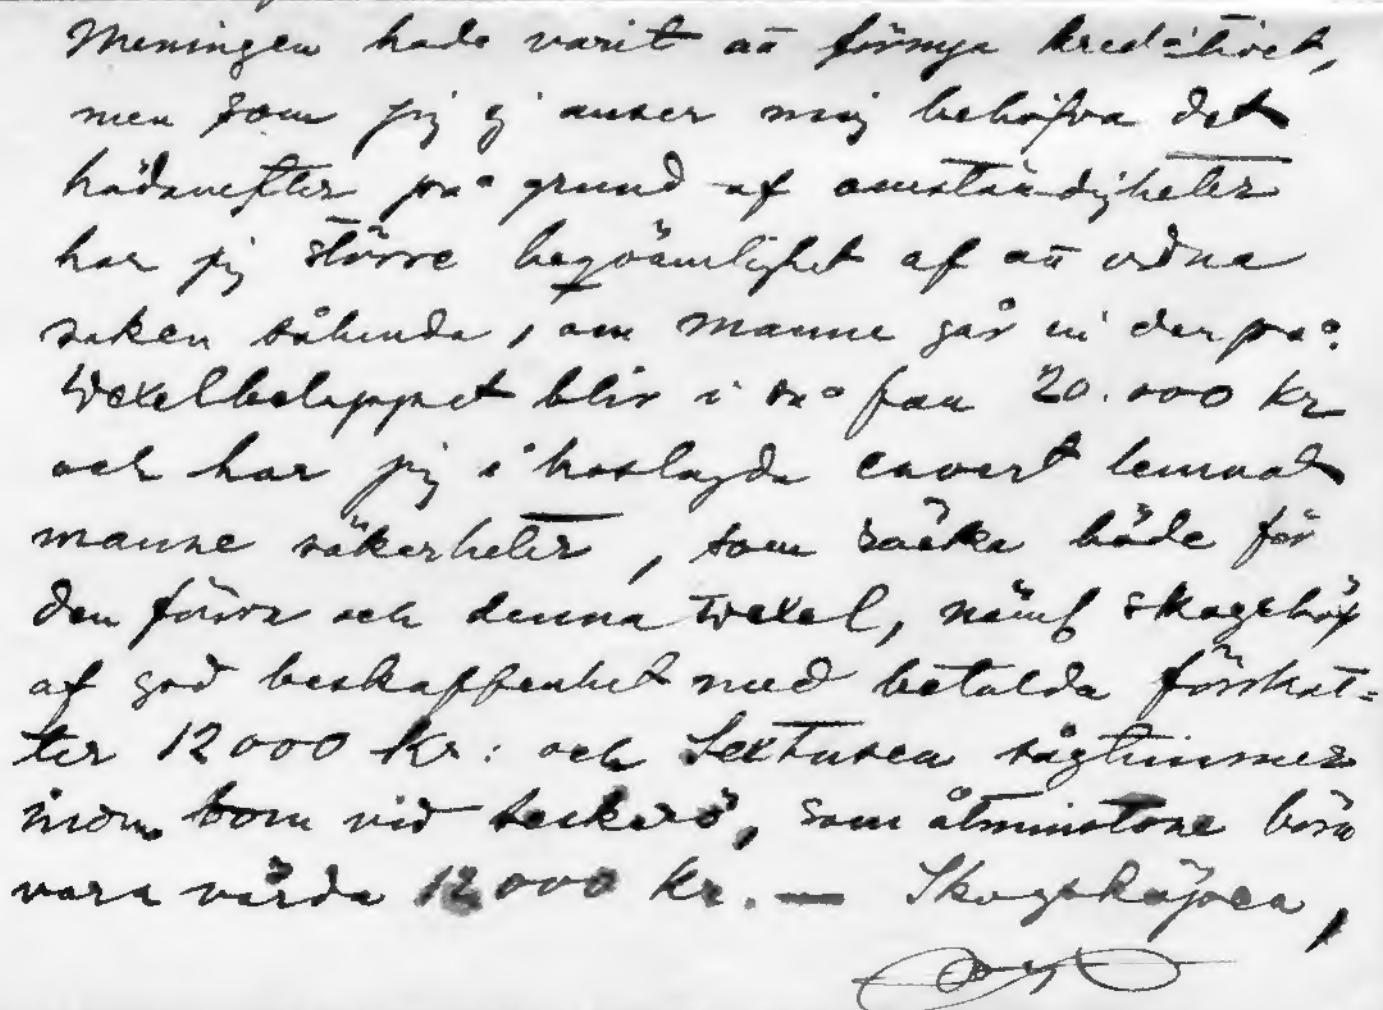 Meningen hade varit att förnya kreditivet,
men som jag ej anser mig behöfva det
hädanefter på grund af omständigheter
har jag större beqvämlighet af att ordna
saken sålunda, om manne går in derpå.
Wexelbeloppet blir i så fall 20.000 Kr
och har jag i hoslagda couvert lemnat
manne säkerheter, som räcka både för
den förra och denna wexel, näml skogsköp
af god beskaffenhet med betalda förskot=
ter 12000 Kr: och Sextusen sågtimmer
inom bom vid Seskarö, som åtminstone böra
vara värda 12000 Kr. — Skogsköpen,